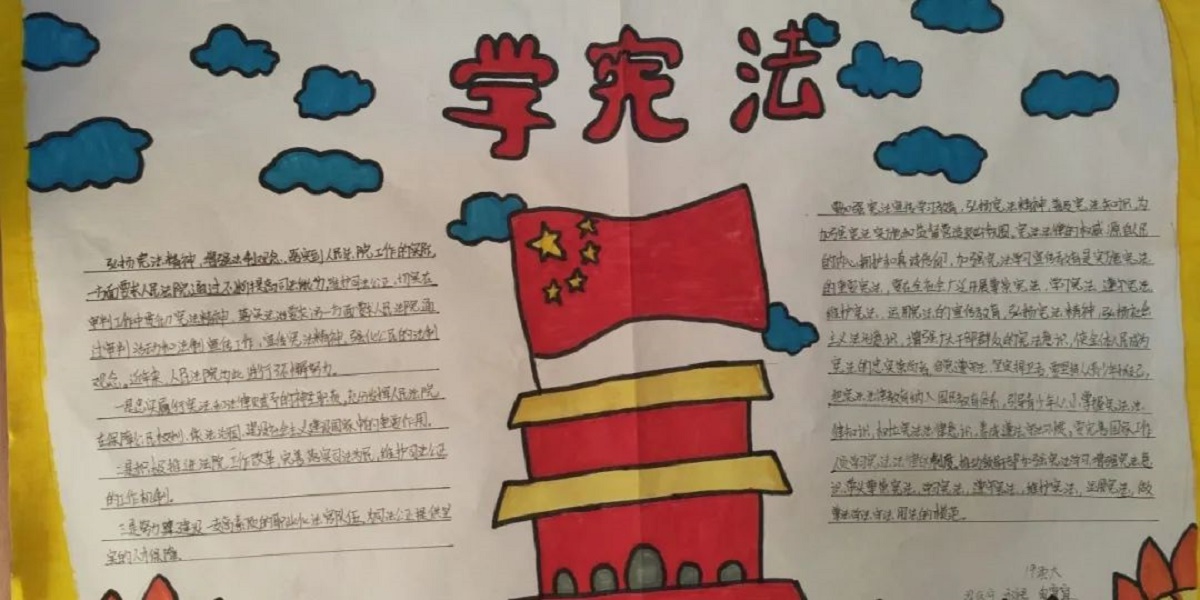 学宪法
弘扬宪法精神，增强法制观念，落实到人民法院工作的实际
一方面要求人民法院通过不断提高司法能力，维护司法公正，切实在
审判工作中贯彻宪法精神，落实法治要求；另一方面要求人民法院通
过审判活动和法制宣传工作，宣传宪法精神，强化公民的法制
观念。近年来，人民法院为此进行了不懈努力。
一是忠实履行宪法和法律赋予的神圣职责，充分发挥人民法院
在保障公民权利、依法治国、建设社会主义法治国家中的重要作用。
二是积极推进法院工作改革，完善落实司法为民，维护司法公正
的工作机制。
三是努力建设一支高素质的职业化法官队伍，为司法公正提供坚
实的人才保障。
要加强宪法宣传学习教育，弘扬宪法精神，普及宪法知识，为
加强宪法实施和监督营造良好氛围。宪法法律的权威源自人民
的内心拥护和真诚信仰，加强宪法学习宣传教育是实施宪法
的重要宪法，要在全社会广泛开展尊崇宪法，学习宪法，遵守宪法
维护宪法，运用宪法的宣传教育，弘扬宪法精神，弘扬社会
主义法治意识，增强广大干部群众的宪法意识，使全体人民成为
宪法的忠实崇尚者，自觉遵守者，坚定捍卫者，要坚持从青少年抓起，
把宪法法律教育纳入国民教育体系，引导青少年从小掌握宪法法
律知识，树立宪法法律意识，养成遵法守法习惯，要完善国家工作
人员学习宪法法律的制度，推动领导干部加强宪法学习，增强宪法意
识，带头尊崇宪法，学习宪法，遵守宪法，维护宪法，运用宪法，做
尊法学法守法用法的模范。